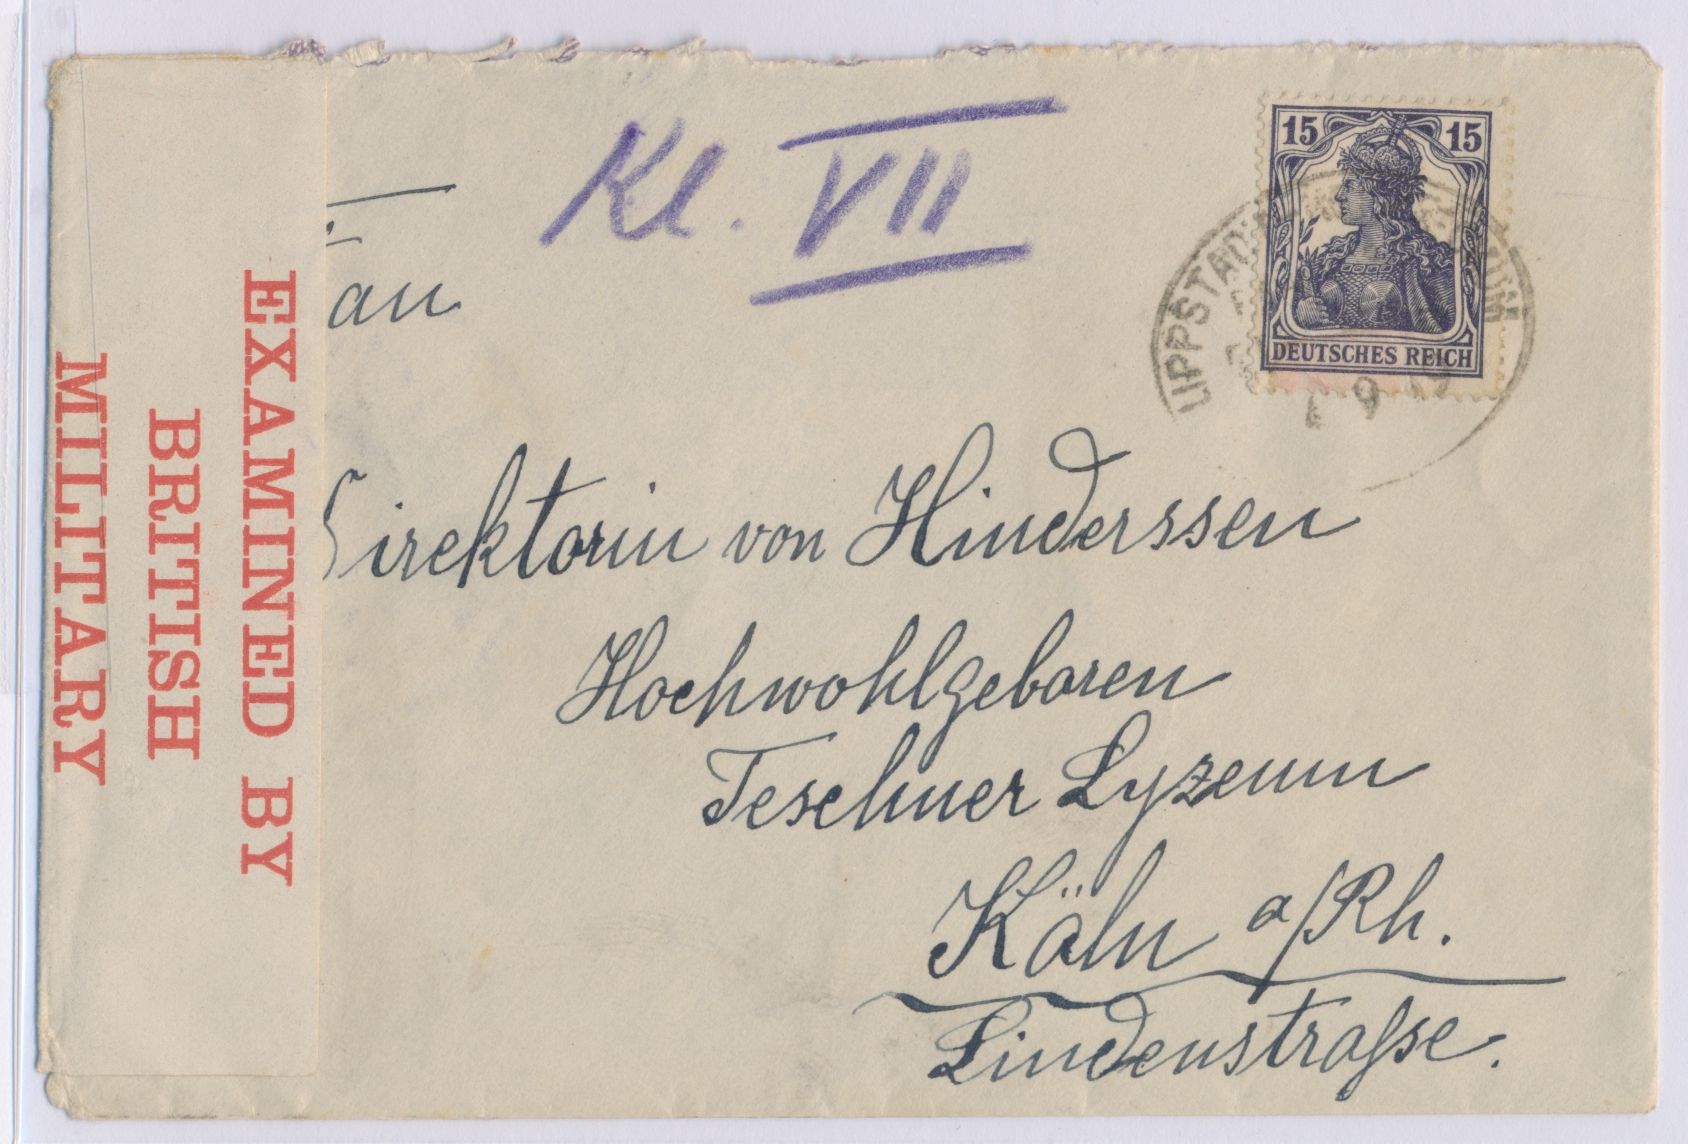 Kl. VII
15 15
DEUTSCHES REICH
LIPPSTADT
9
au
Direktorin von Hinderssen
Hochwohlgeboren
Teschner Lyzeum
Köln a/Rh.
Lindenstraſse.
EXAMINED BY
BRITISH
MILITARY